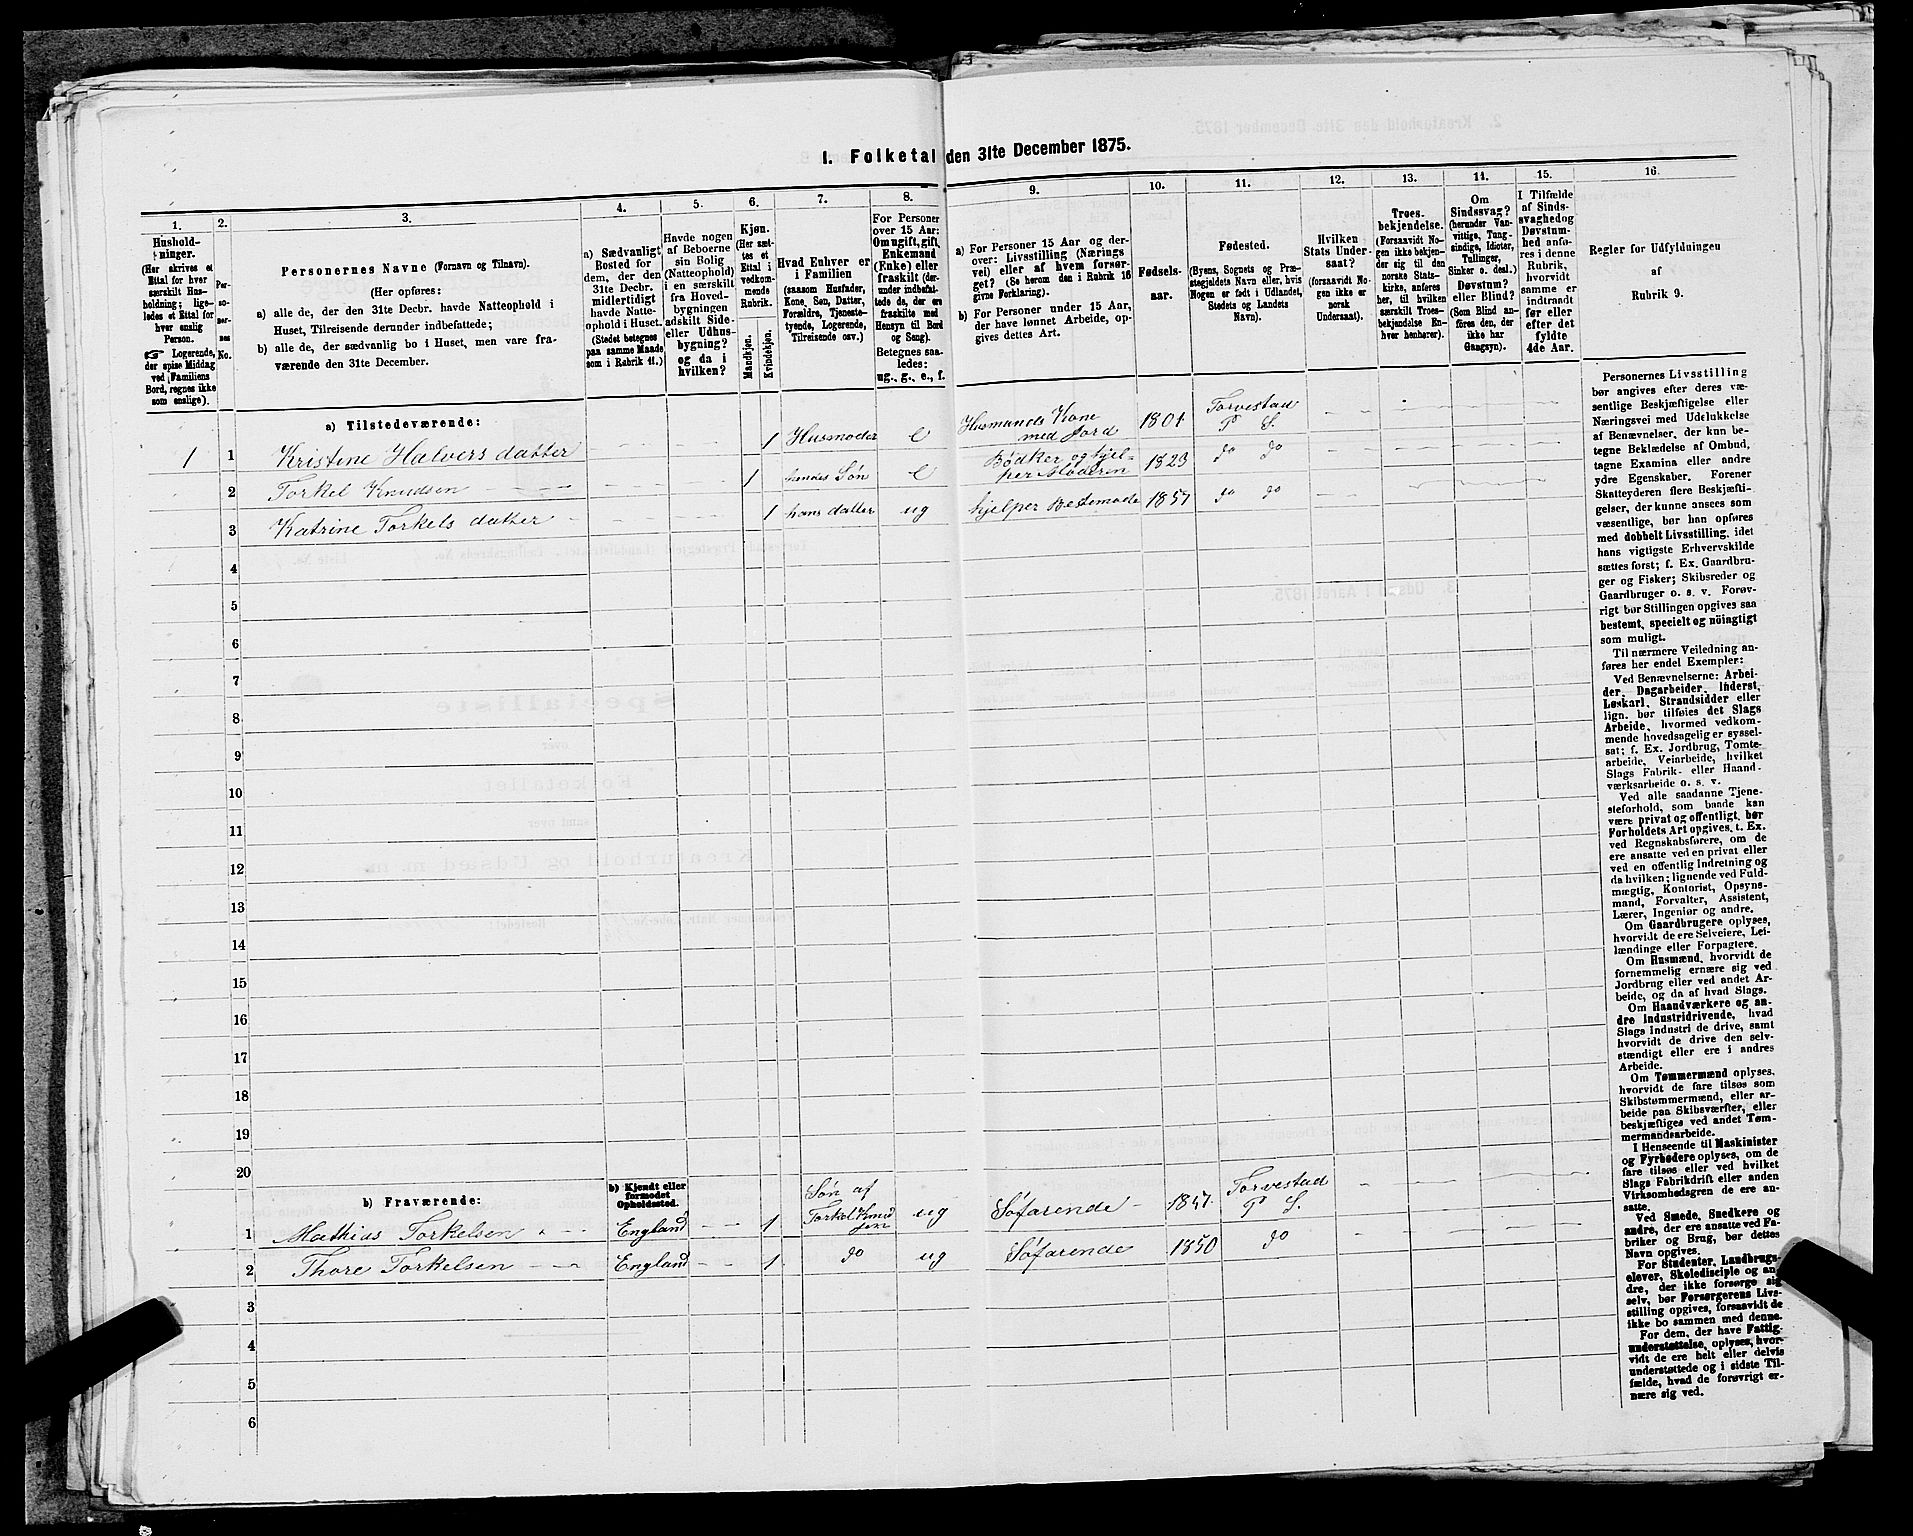 I. Folketal den 31te December 1875.
1. 2. 3. 4. 5. 6. 7. 8. 9. 10. 11. 12. 13. 14. 15. 16.
Hushold-
ninger.
(Her skrives et
Ettal for hver
særskilt Hus-
holdning; lige-
ledes et Ettal for
hver enslig
Person.
☞ Logerende,
der spise Middag
ved Familiens
Bord, regnes ikke
som enslige).
Per-
so-
ner-
nes
No.
Personernes Navne (Fornavn og Tilnavn).
(Her opføres:
a) alle de, der den 31te Decbr. havde Natteophold i
Huset, Tilreisende derunder indbefattede;
b) alle de, der sædvanlig bo i Huset, men vare fra-
værende den 31te December.
a) Sædvanligt
Bosted for
dem, der den
31te Decbr.
midlertidigt
havde Natte-
ophold i Huset.
(Stedet betegnes
paa samme Maade
som i Rubrik 11.)
Havde nogen
af Beboerne
sin Bolig
(Natteophold)
i en særskilt
fra Hoved-
bygningen
adskilt Side-
eller Udhus-
bygning?
og da i
hvilken?
Kjøn.
(Her sæt-
tes et
Ettal i
vedkom-
mende
Rubrik.
Mandkjøn.
Kvindekjøn.
Hvad Enhver er
i Familien
(saasom Husfader,
Kone, Søn, Datter,
Forældre, Tjeneste-
tyende, Logerende,
Tilreisende osv.)
For Personer
over 15 Aar:
Om ugift, gift,
Enkemand
(Enke) eller
fraskilt (der-
under indbefat-
tede da, der ere
fraskilte med
Hensyn til Bord
og Seng).
Betegnes saa-
ledes:
ug., g., e., f.
a) For Personer 15 Aar og der-
over: Livsstilling (Nærings
vei) eller af hvem forsør-
get? (Se herom den i Rubrik 16
givne Forklaring).
b) For Personer under 15 Aar,
der have lønnet Arbeide, op-
gives dettes Art.
Fødsels-
aar.
Fødested.
(Byens, Sognets og Præ-
stegjeldets Navn eller, hvis
Nogen er født i Udlandet,
Stedets og Landets
Navn).
Hvilken
Stats Under-
saat?
(forsaavidt No-
gen ikke er
norsk
Undersaat).
Troes-
bekjendelse.
(Forsaavidt No-
gen ikke bekjen-
der sig til den
norske Stats-
kirke, anføres
her, til hvilken
særskilt Troes-
bekjendelse En-
hver henhører).
Om
Sindssvag?
(herunder Van-
vittige, Tung-
sindige, Idioter,
Tullinger,
Sinker o. desl.)
Døvstum?
eller Blind?
(Som Blind an-
føres den, der
ikke har
Gangsyn).
I Tilfælde
af Sinds-
svaghed og
Døvstum-
hed anfø-
res i denne
Rubrik,
hvorvidt
samme er
indtraadt
før eller
efter det
fyldte
4de Aar.
Regler for Udfyldningen
af
Rubrik 9.
a) Tilstedeværende:
1 1 Kristine Halversdatter - - - - 1 Husmoder e Husmands Kone med Jord 1801 Torvestad P S. - - - -
2 Torkel Knudsen - - - - 1 hennes Søn e Bødker og hjel-per Moderen 1823 do do - - - -
3 Katrine Torkelsdatter - - - - 1 hans datter ug hjelper Bedstemode 1857 do do - - - -
4
5
6
7
8
9
10
11
12
13
14
15
16
17
18
19
20
b) Fraværende:
b) Kjendt eller
formodet
Opholdssted.
1 Mathias Torkelsen - - England - - 1 Søn af Torkel Knudsen ug Søfarende - 1857 Torvestad P S. - - - -
2 Thore Torkelsen - - England - - 1 do ug Søfarende 1850 do - - - -
3
4
5
6
Personernes Livsstilling
bør angives efter deres væ-
sentlige Beskjæftigelse eller
Næringsvei med Udelukkelse
af Benævnelser, der kun be-
tegne Beklædelse af Ombud,
tagne Examina eller andre
ydre Egenskaber. Forener
Skatteyderen flere Beskjæfti-
gelser, der kunne ansees som
væsentlige, bør han opføres
med dobbelt Livsstilling, idet
hans vigtigste Erhvervskilde
sættes først; f. Ex. Gaardbru-
ger og Fisker; Skibsreder og
Gaardbruger o. s. v. Forøv-
rigt bør Stillingen opgives saa
bestemt, specielt og nöiagtigt
som muligt.
Til nærmere Veiledning an-
føres her endel Exempler:
Ved Benævnelserne: Arbei-
der, Dagarbeider, Inderst,
Løskarl, Strandsidder eller
lign. bør tilføies det Slags
Arbeide, hvormed vedkom-
mende hovedsagelig er syssel-
sat; f. Ex. Jordbrug, Tomte-
arbeide, Veiarbeide, hvilket
Slags Fabrik- eller Haand-
værksarbeide o. s. v.
Ved alle saadanne Tjene-
steforhold, som baade kan
være privat og offentligt, bør
Forholdets Art opgives, t. Ex.
ved Regnskabsførere, om de
ere ansatte ved en privat eller
ved en offentlig Indretning og
da hvilken; lignende ved Fuld-
mægtig, Kontorist, Opsyns-
mand, Forvalter, Assistent,
Lærer, Ingeniør og andre.
Om Gaardbrugere oplyses,
hvorvidt de ere Selveiere, Lei-
lændinge eller Forpagtere.
Om Husmænd, hvorvidt de
fornemmelig ernære sig ved
Jordbrug eller ved andet Ar-
beide, og da af hvad Slags.
Om Haandværkere og an-
dre Industridrivende, hvad
Slags Industri de drive, samt
hvorvidt de drive den selv-
stændigt eller ere i andres
Arbeide.
Om Tømmermænd oplyses,
hvorvidt de fare tilsøs som
Skibstømmermænd, eller ar-
beide paa Skibsværfter, eller
beskjæftiges ved andet Tøm-
mermandsarbeide.
I Henseende til Maskinister
og Fyrbødere oplyses, om de
fare tilsøs eller ved hvilket
Slags Fabrikdrift eller anden
Virksomhedsgren de ere an-
satte.
Ved Smede, Snedkere og
andre, der ere ansatte ved Fa-
briker og Brug, bør dettes
Navn opgives.
For Studenter, Landbrugs-
elever, Skoledisciple og an-
dre, der ikke forsørge sig
selv, bør Forsørgerens Livs-
stilling opgives, forsaavidt de
ikke bo sammen med denne.
For dem, der have Fattig-
understøttelse, oplyses, hvor-
vidt de ere helt eller delvis
understøttede og i sidste Til-
fælde, hvad de forøvrigt er-
nære sig ved.